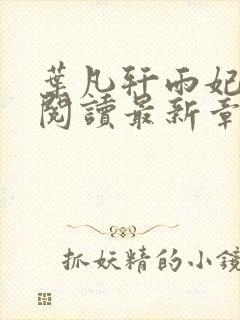 葉凡轩雨妃
閱讀最新章
抓妖精的小鏡